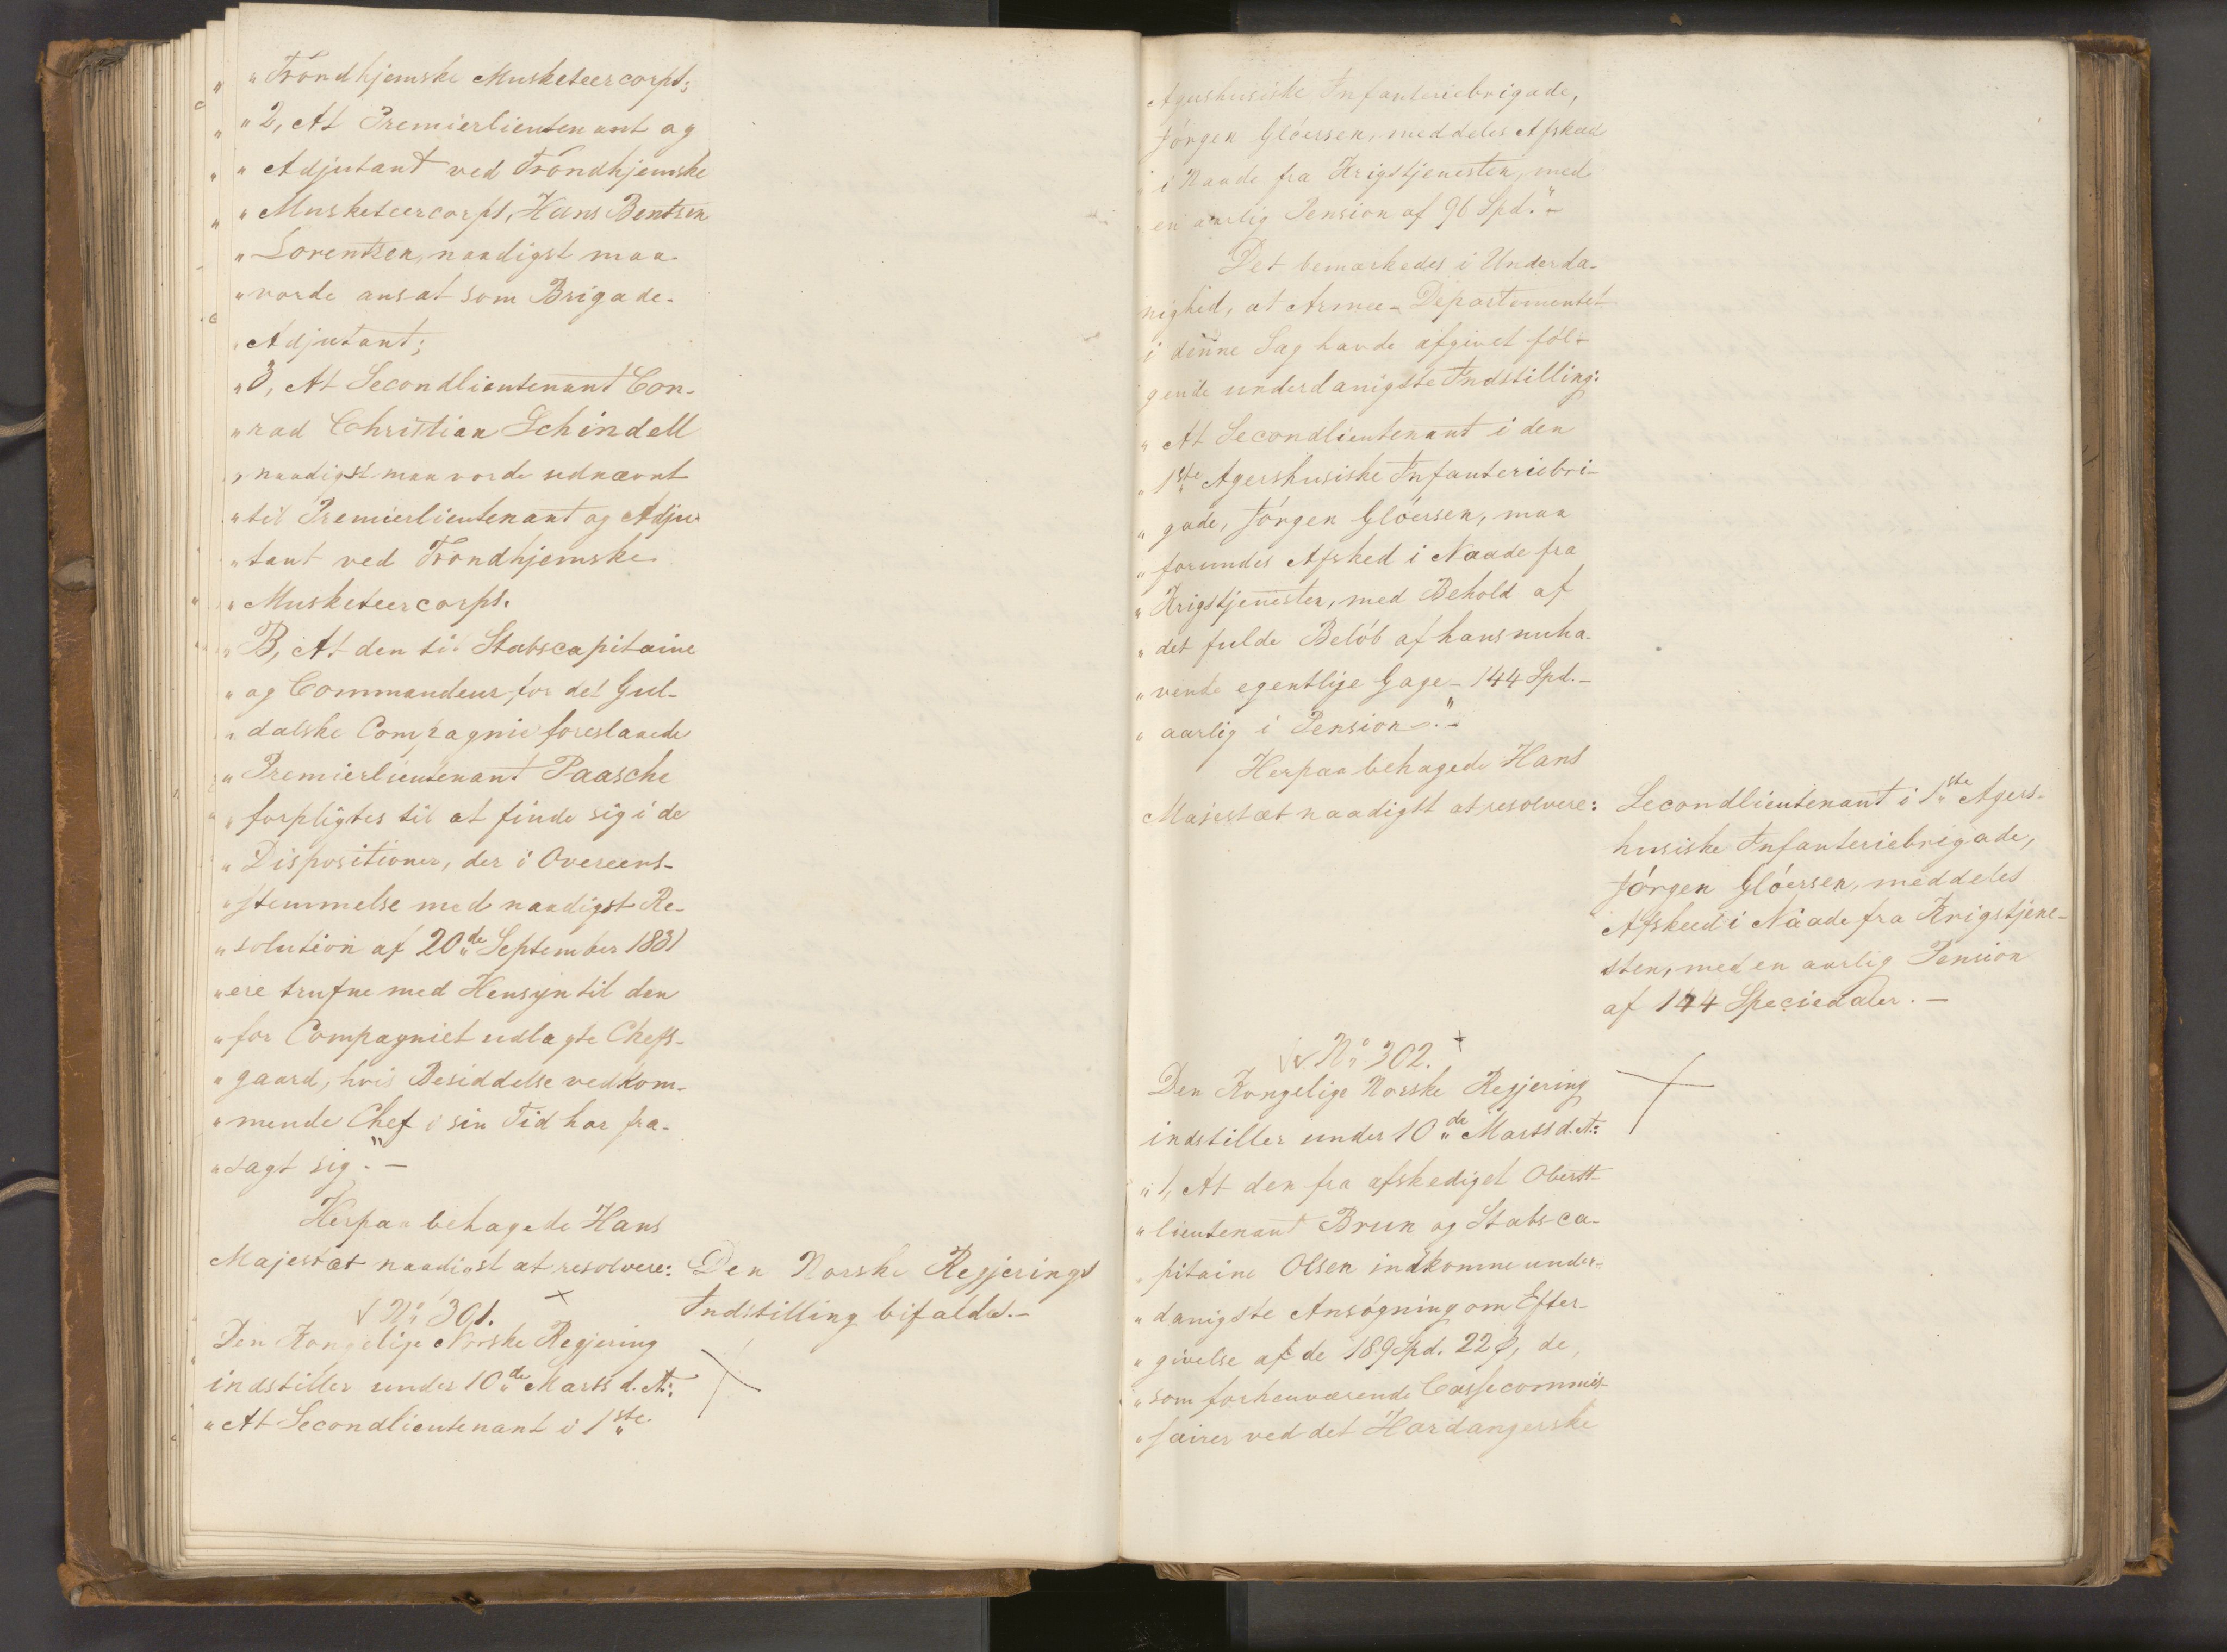 " Trondhjemske Musketeercorps;
" 2, At Premierlieutenant og
" Adjutant ved Trondhjemske
" Musketeercorps, Hans Bentsen
" Lorentzen, naadigst maa
" vorde ansat som Brigade-
" Adjutant;
" 3, At Secondlieutenant Con-
" rad Christian Schindell
" naadigst maa vorde udnævnt
" til Premierlieutenant og Adju-
" tant ved Trondhjemske
" Musketeercorps.
" B, At den til Stabscapitaine
" og Commandeur for det Gul-
" dalske Compagnie foreslaaede
" Premierlieutenant Paasche
" forpligtes til at finde sig i de
" Dispositioner, der i Overeens-
" stemmelse med naadigst Re-
" solution af 20de September 1831
" ere trufne med Hensyn til den
" for Compagniet udlagte Chefs-
" gaard, hvis Besiddelse vedkom-
" mende Chef i sin Tid har fra-
" sagt sig." —
Herpaa behagede Hans
Majestæt naadigst at resolvere:
Den Norske Regjerings
Indstilling bifaldes.—
No 301.
Den Kongelige Norske Regjering
indstiller under 10de Marts d. A:
" At Secondlieutenant i 1ste
Agershusiske Infanteriebrigade,
Jörgen Glöersen, meddeles Afskeed
" i Naade fra Krigstjenesten, med
" en aarlig Pension af 96 Spd."—
Det bemærkedes i Underda-
nighed, at Armee-Departementet
i denne Sag havde afgivet föl-
gende underdanigste Indstilling:
" At Secondlieutenant i den
" 1ste Agershusiske Infanteriebri-
" gade, Jörgen Glöersen, maa
" forundes Afsked i Naade fra
" Krigstjenesten, med Behold af
" det fulde Belöb af hans nuha-
" vende egentlige Gage – 144 Spd.–
" aarlig i Pension."–
Herpaa behagede Hans
Majestæt naadigst at resolvere:
Secondlieutenant i 1ste Agers-
husiske Infanteriebrigade,
Jörgen Glöersen, meddeles
Afskeed i Naade fra Krigstjene-
sten, med en aarlig Pension
af 144 Speciedaler. —
No 302.
Den Kongelige Norske Regjering
indstiller under 10de Marts d. A:
" 1, At den fra afskediget Oberst-
" lieutenant Brun og Stabsca-
" pitaine Olsen indkomne under-
" danigste Ansögning om Efter-
" givelse af de 189 Spd. 22 ß, de,
" som forhenværende Cassecommis-
" sairer ved det Hardangerske